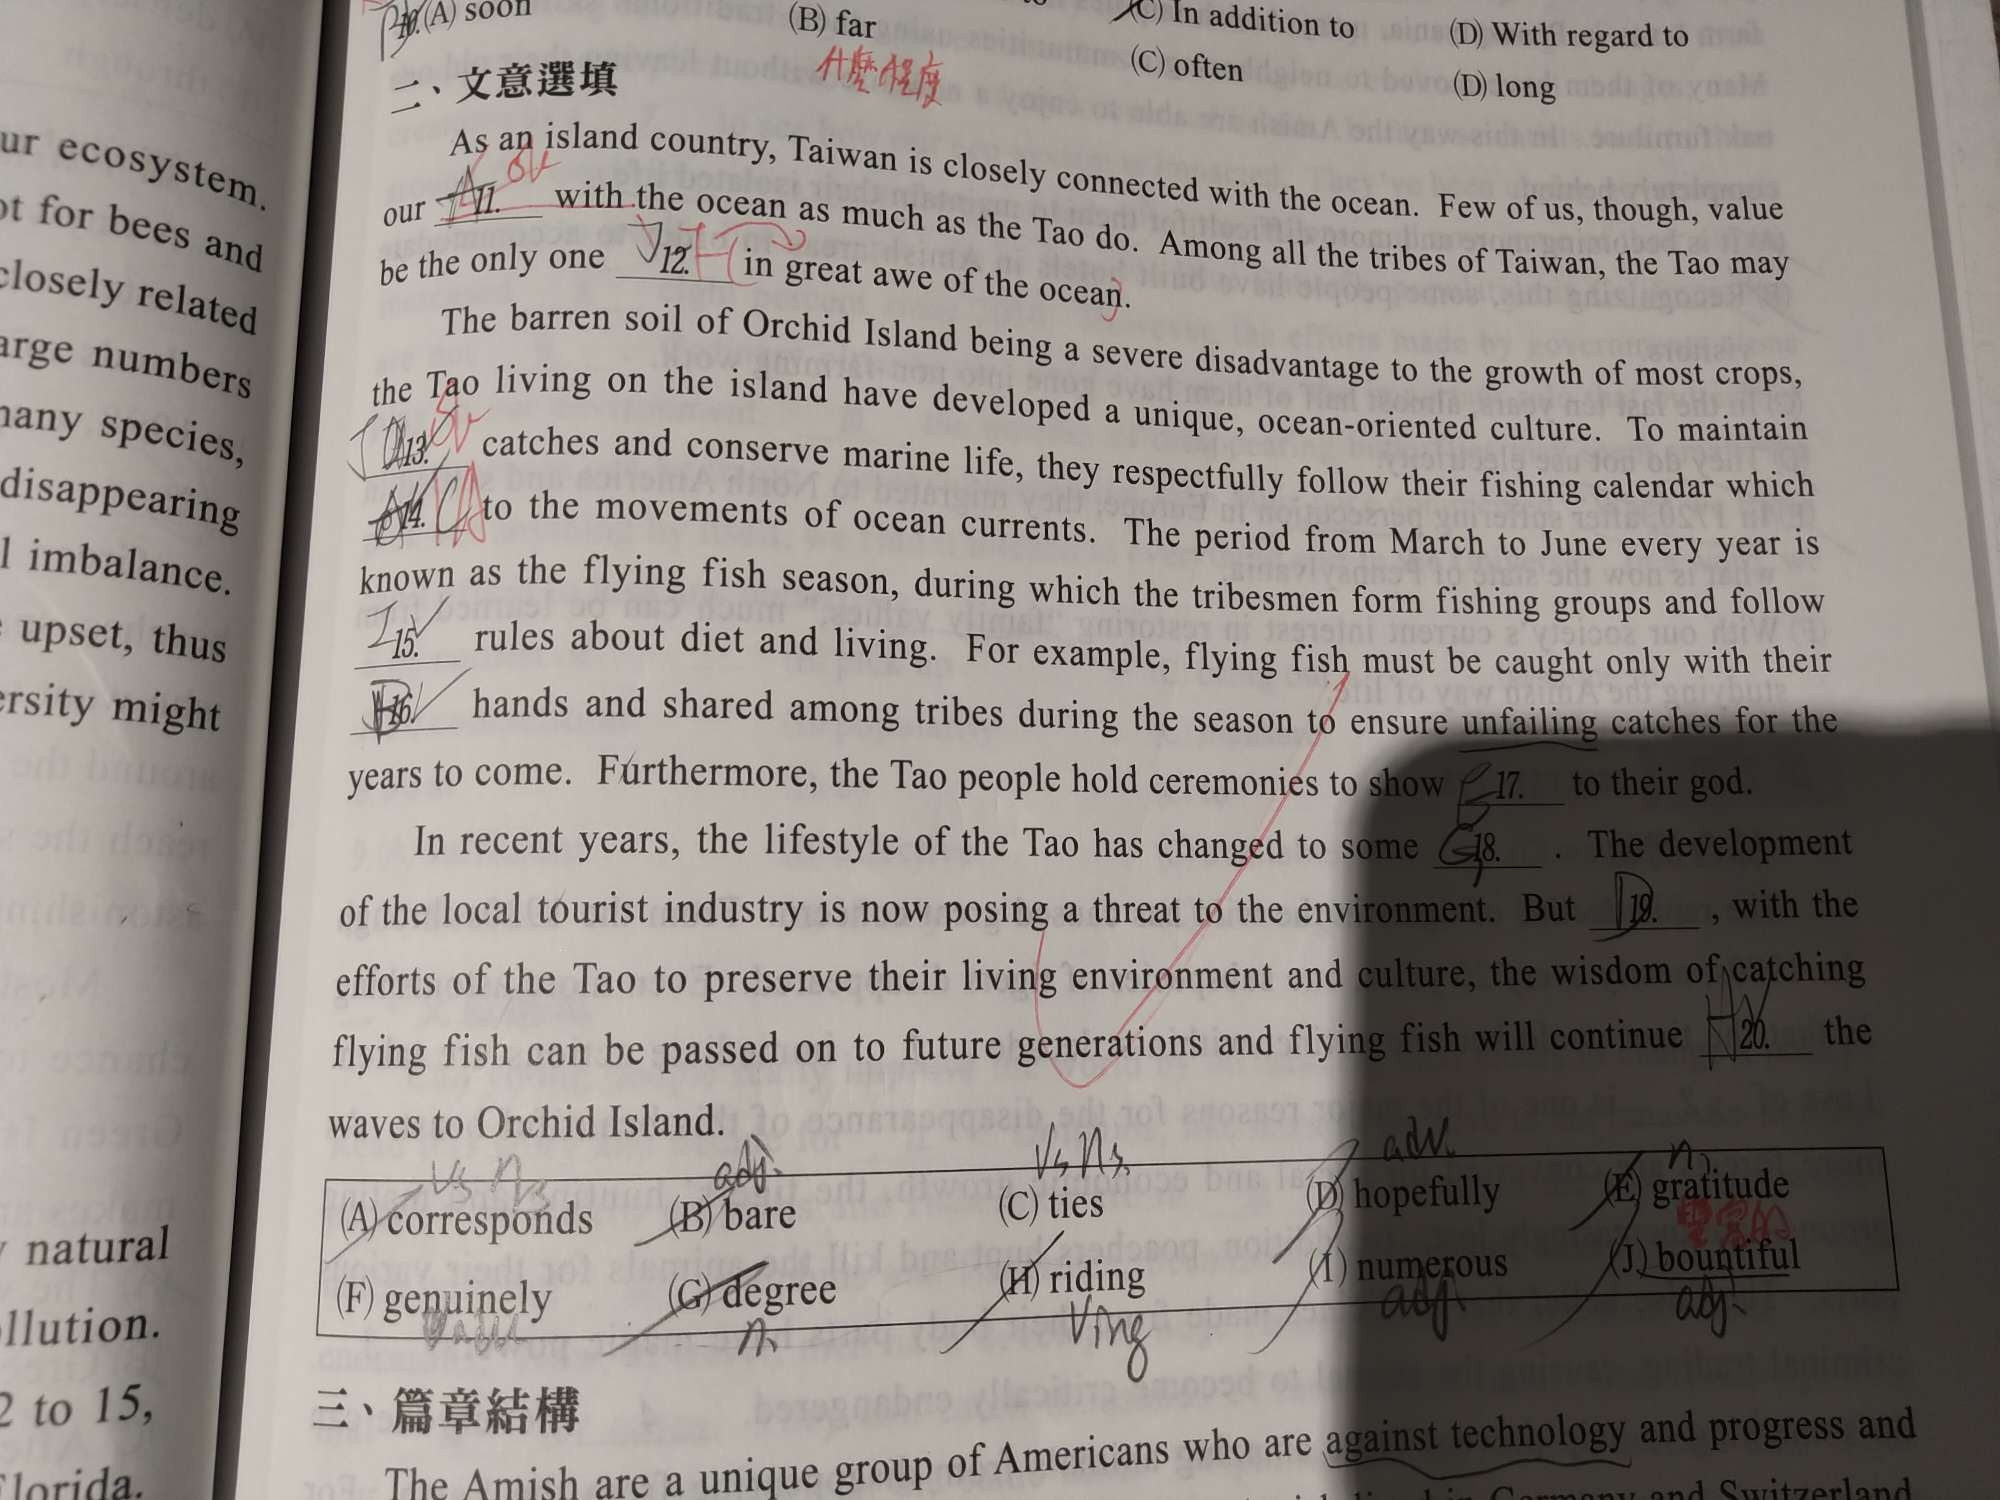 ur ecosystem.
ot for bees and
closely related
arge numbers
many species,
disappearing
l imbalance.
upset, thus
ersity might
natural
ollution.
2 to 15,
Florida.
(A) soon
(B) far
(C) In addition to
(D) With regard to
(C) often
(D) long
什麼程度
二、文意選填
As an island country, Taiwan is closely connected with the ocean. Few of us, though, value
our 11. with the ocean as much as the Tao do. Among all the tribes of Taiwan, the Tao may
be the only one 12. in great awe of the ocean.
The barren soil of Orchid Island being a severe disadvantage to the growth of most crops,
the Tao living on the island have developed a unique, ocean-oriented culture. To maintain
13. catches and conserve marine life, they respectfully follow their fishing calendar which
14. to the movements of ocean currents. The period from March to June every year is
known as the flying fish season, during which the tribesmen form fishing groups and follow
I 15. rules about diet and living. For example, flying fish must be caught only with their
B 16. hands and shared among tribes during the season to ensure unfailing catches for the
years to come. Furthermore, the Tao people hold ceremonies to show E 17. to their god.
In recent years, the lifestyle of the Tao has changed to some G 18. . The development
of the local tourist industry is now posing a threat to the environment. But D 19. , with the
efforts of the Tao to preserve their living environment and culture, the wisdom of catching
flying fish can be passed on to future generations and flying fish will continue H 20. the
waves to Orchid Island.
Vs Ns
adj.
Vs Ns.
adv.
n.
(A) corresponds (B) bare (C) ties (D) hopefully (E) gratitude
豐富的
(F) genuinely (G) degree (H) riding (I) numerous (J) bountiful
n.
Ving
adj.
adj.
三、篇章結構
The Amish are a unique group of Americans who are against technology and progress and
in Germany and Switzerland